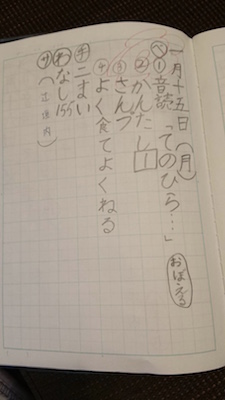 一月十五日(月)
べ①音読「てのひら…」おぼえる
②かんたし1
③さんプ
④よく食てよくねる
手二まい
わなし155
サ